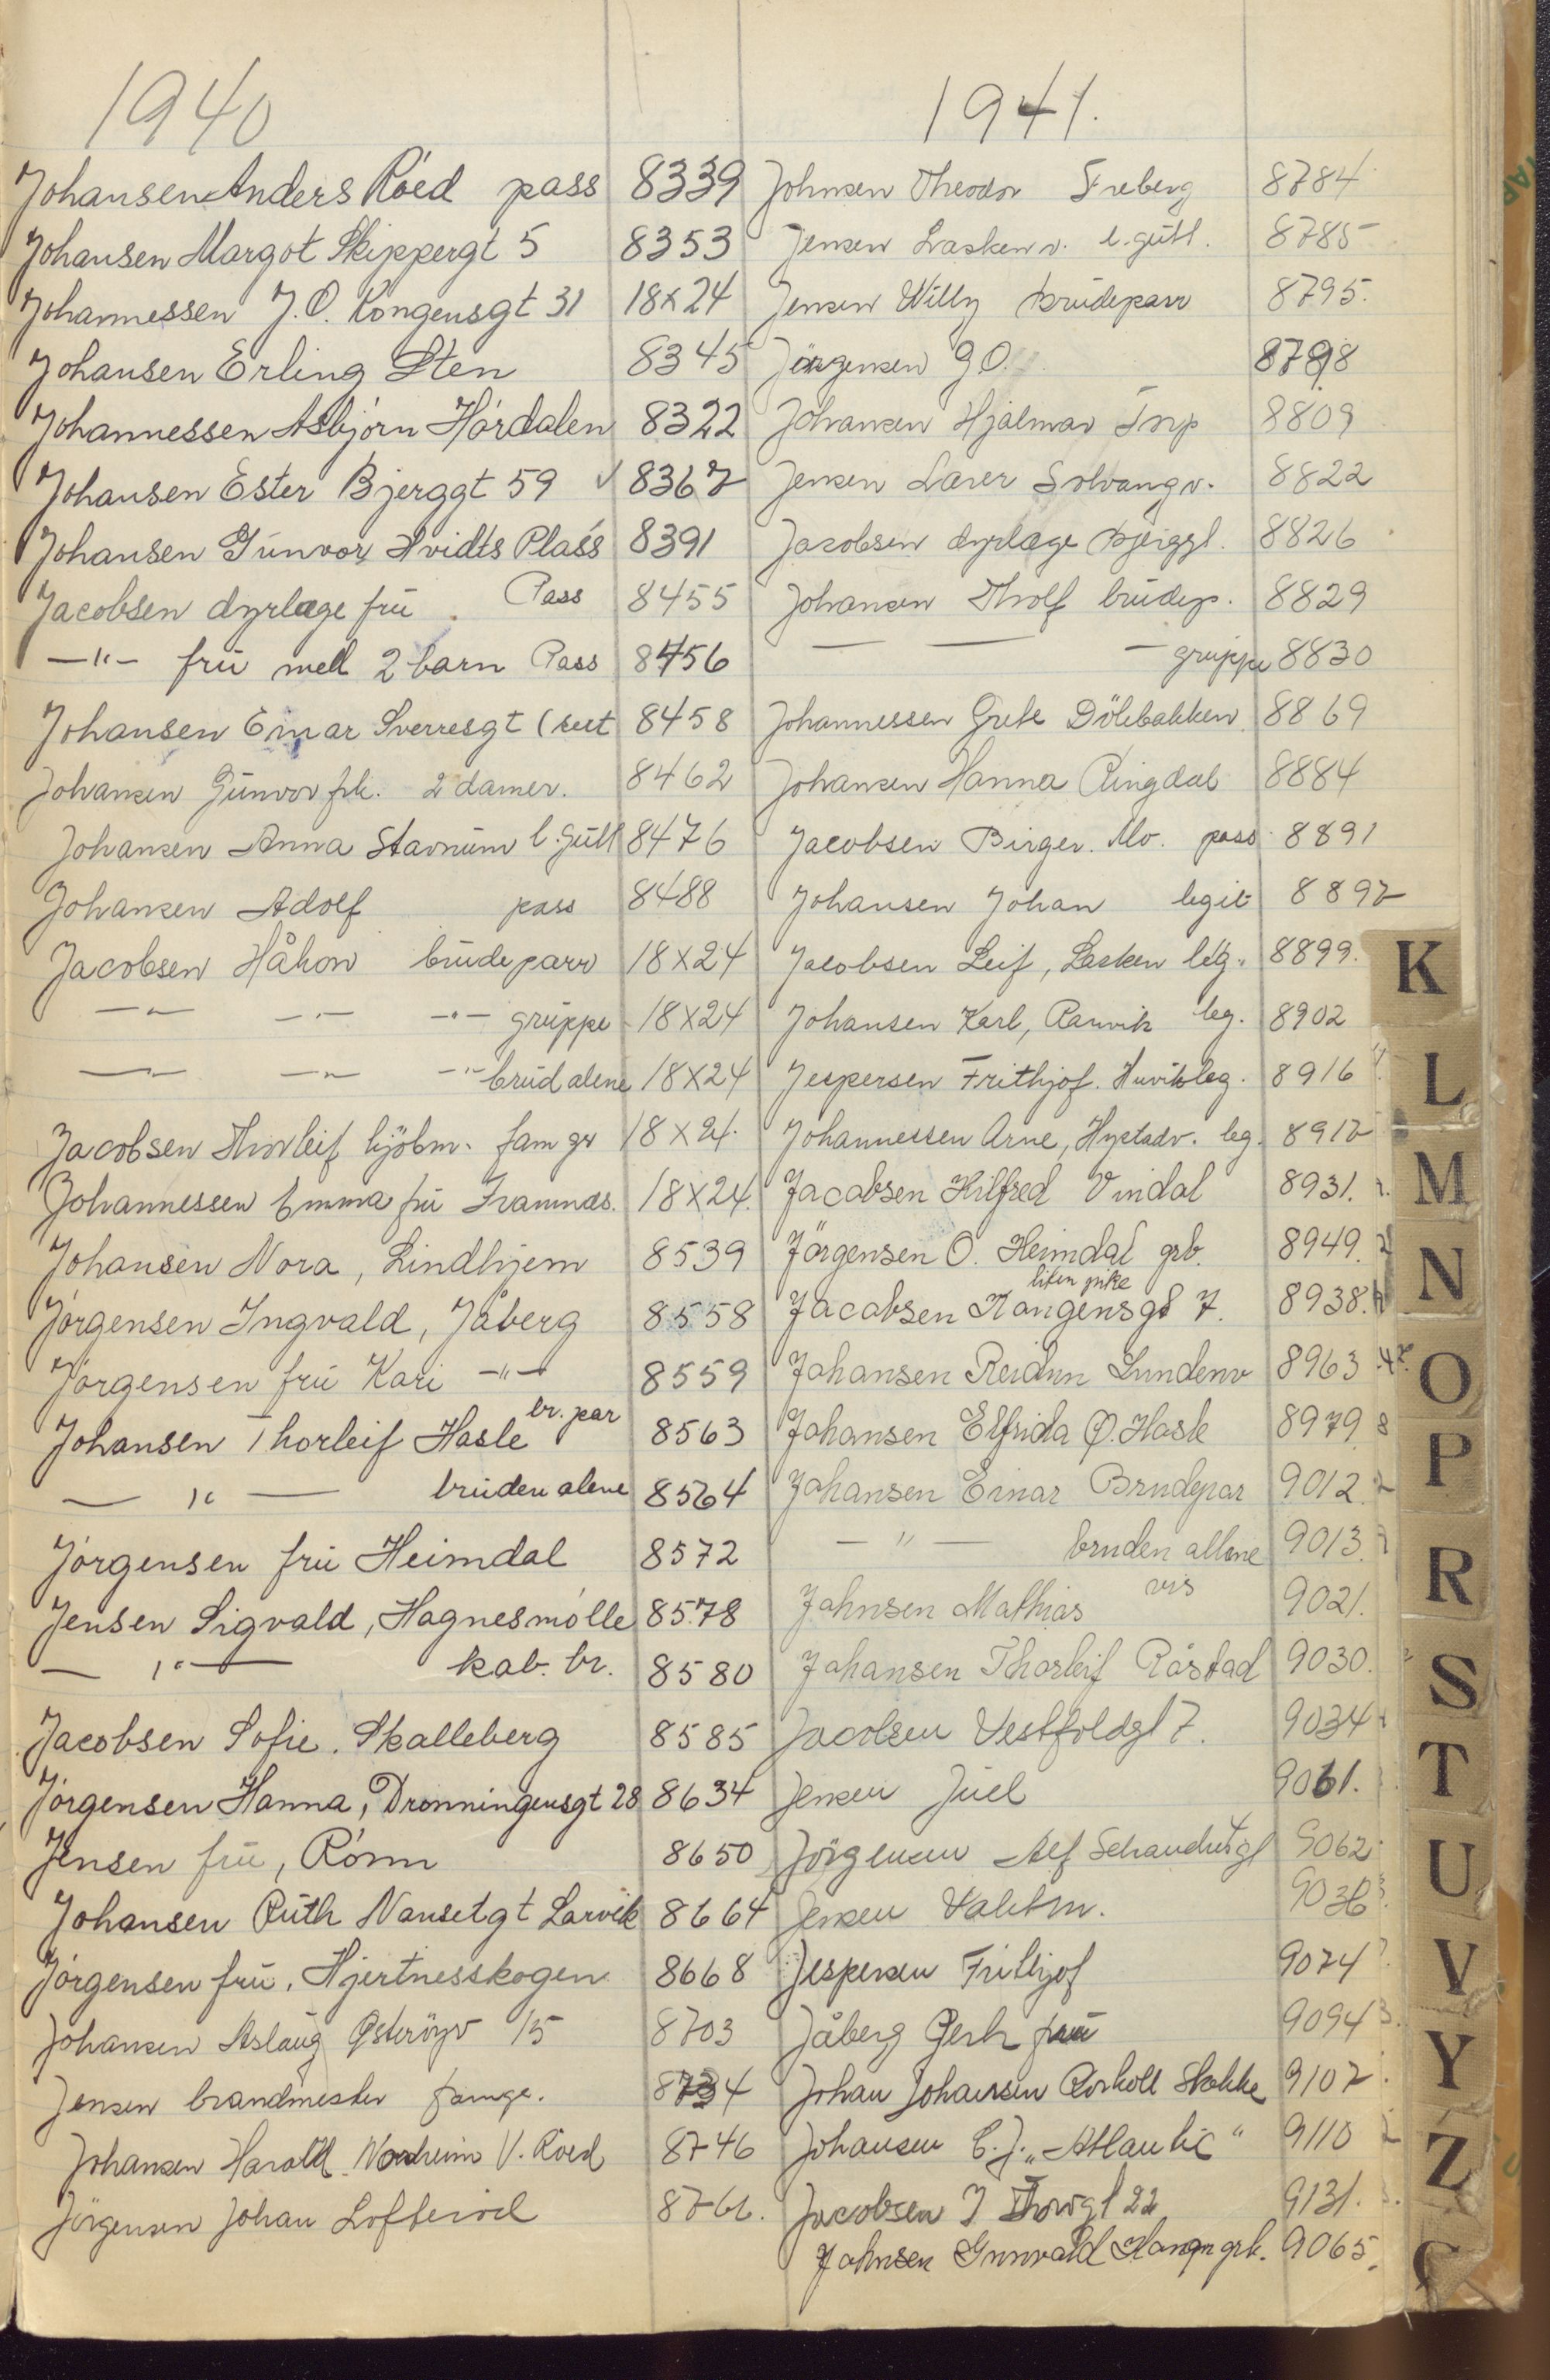 1940
Johansen Anders Röed pass 8339
Johansen Margot Skippergt 5 8353
Johannessen J. O. Kongensgt 31 18x24
Johansen Erling Sten 8345
Johannessen Asbjørn Hórdalen 8322
Johansen Ester Bjerggt 59 √ 8367
Johansen Gunvor Hvidts Plass 8391
Jacobsen dyrlæge frü Pass 8455
—"— frü med 2 barn Pass 8456
Johansen Einar Sverresgt 8458
Johansen Gunvor frk. 2 damer. 8462
Johansen Anna Stavnum l. Gutt 8476
Johansen Adolf pass 8488
Jacobsen Håkon brudeparr 18x24
—"— —"— —"— gruppe 18x24
—"— —"— —"— brud alene 18x24
Jacobsen Thorleif kjöbm. fam gr 18x24.
Johannessen Emma frü Framnæs. 18x24.
Johansen Nora, Lindhjem 8539
Jørgensen Ingvald, Jåberg 8558
Jørgensen frü Kari —"— 8559
Johansen Thorleif Hasle br. par 8563
— " — bruden alene 8564
Jørgensen frü Heimdal 8572
Jensen Sigvald, Hagnesmølle 8578
— " — kab. br. 8580
Jacobsen Sofie. Skalleberg 8585
Jørgensen Hanna, Dronningensgt 28 8634
Jensen frü, Rónn 8650
Johansen Ruth Nansetgt Larvik 8664
Jørgensen frü, Hjertnesskogen 8668
Johansen Aslaug Österöyv 15 8703
Jensen brandmester 8734
Johansen Harald Nordheim V. Röed 8746
Jörgensen Johan Lofteröd
1941.
Johnsen Theodor Freberg 8784
Jensen Laskenv. l. gutt. 8785
Jensen Willy brudeparr 8795.
Jörgensen G O. 8798
Johansen Hjalmar Torp 8809
Jensen Lærer Solvangv. 8822
Jacobsen dyrlæge Bjerggt. 8826
Johansen Tholf brudep. 8829
— — — gruppe 8830
Johannessen Grete Dölebakken 8869
Johansen Hanna Ringdal 8884
Jacobsen Birger. Mo. pass 8891
Johansen Johan legit 8892
Jacobsen Leif, Lasken leg. 8899.
Johansen Karl, Ranvik leg. 8902
Jespersen Frithjof. Huvik leg. 8916
Johannessen Arne, leg. 8912
Jacobsen Hilfred Vindal 8931.
Jörgensen O. Heimdal grb. 8949.
liten pike
Jacobsen Kongensgt 7. 8938.
Johansen Reidun Lundenv 8963
Johansen Elfrida Ø. Hasle 8979
Johansen Einar Brudepar 9012.
— " — bruden allene 9013.
Johnsen Mathias vis 9021.
Johansen Thorleif Råstad 9030.
Jacobsen Vestfoldgt 7. 9034
Jensen Juel 9061.
Jörgensen Alf 9062
Jensen Vaktm. 9036
Jespersen Frithjof 9074
Jåberg frü 9094
Johan Johansen Stokke 9107
Johansen C. J. „Atlantic" 9110
Jacobsen J Thorsgt 22 9131.
Johnsen Gunvald grb. 9065.
K
L
M
N
O
P
R
S
T
U
V
Y
Z